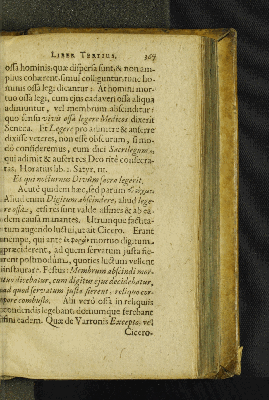 LIBER TERTIUS. 367
ossa hominis, quæ dispersa sunt, & non am-
plius cohærent, simul colliguntur, tunc ho-
minis ossa legi dicantur: At homini mor-
tuo ossa legi, cum ejus cadaveri ossa aliqua
adimuntur, vel membrum abscinditur:
quo sensu vivis ossa legere Medicos dixerit
Seneca. Et Legere pro adimere & auferre
dixisse veteres, non esse obscurum, si mo-
dò consideremus, cum dici Sacrilegum,
qui adimit & aufert res Deo ritè consecra-
tas, Horatius lib. 2. Satyr. III.
Et qui nocturnus Divûm sacra legerit.
Acutè quidem hæc, sed parum
Aliud enim Digitum abscindere, aliud lege-
re ossa, etsi res sunt valde affines & ab ea-
dem causa manantes. Utrumque factita-
tum augendo luctui, ut ait Cicero. Erant
nempe, qui ante mortuo digitum
præciderent, ad quem servatum justa fie-
rent postmodum, quoties luctum vellent
instaurare. Festus: Membrum abscindi mor-
tuo dicebatur, cum digitus ejus decidebatur,
ad quod servatum justa fierent, reliquo cor-
pore combusto. Alii verò ossa in reliquiis
condendis legebant, domumque ferebant
fini eadem. Quæ de Varronis Excepto, vel
Cicero-